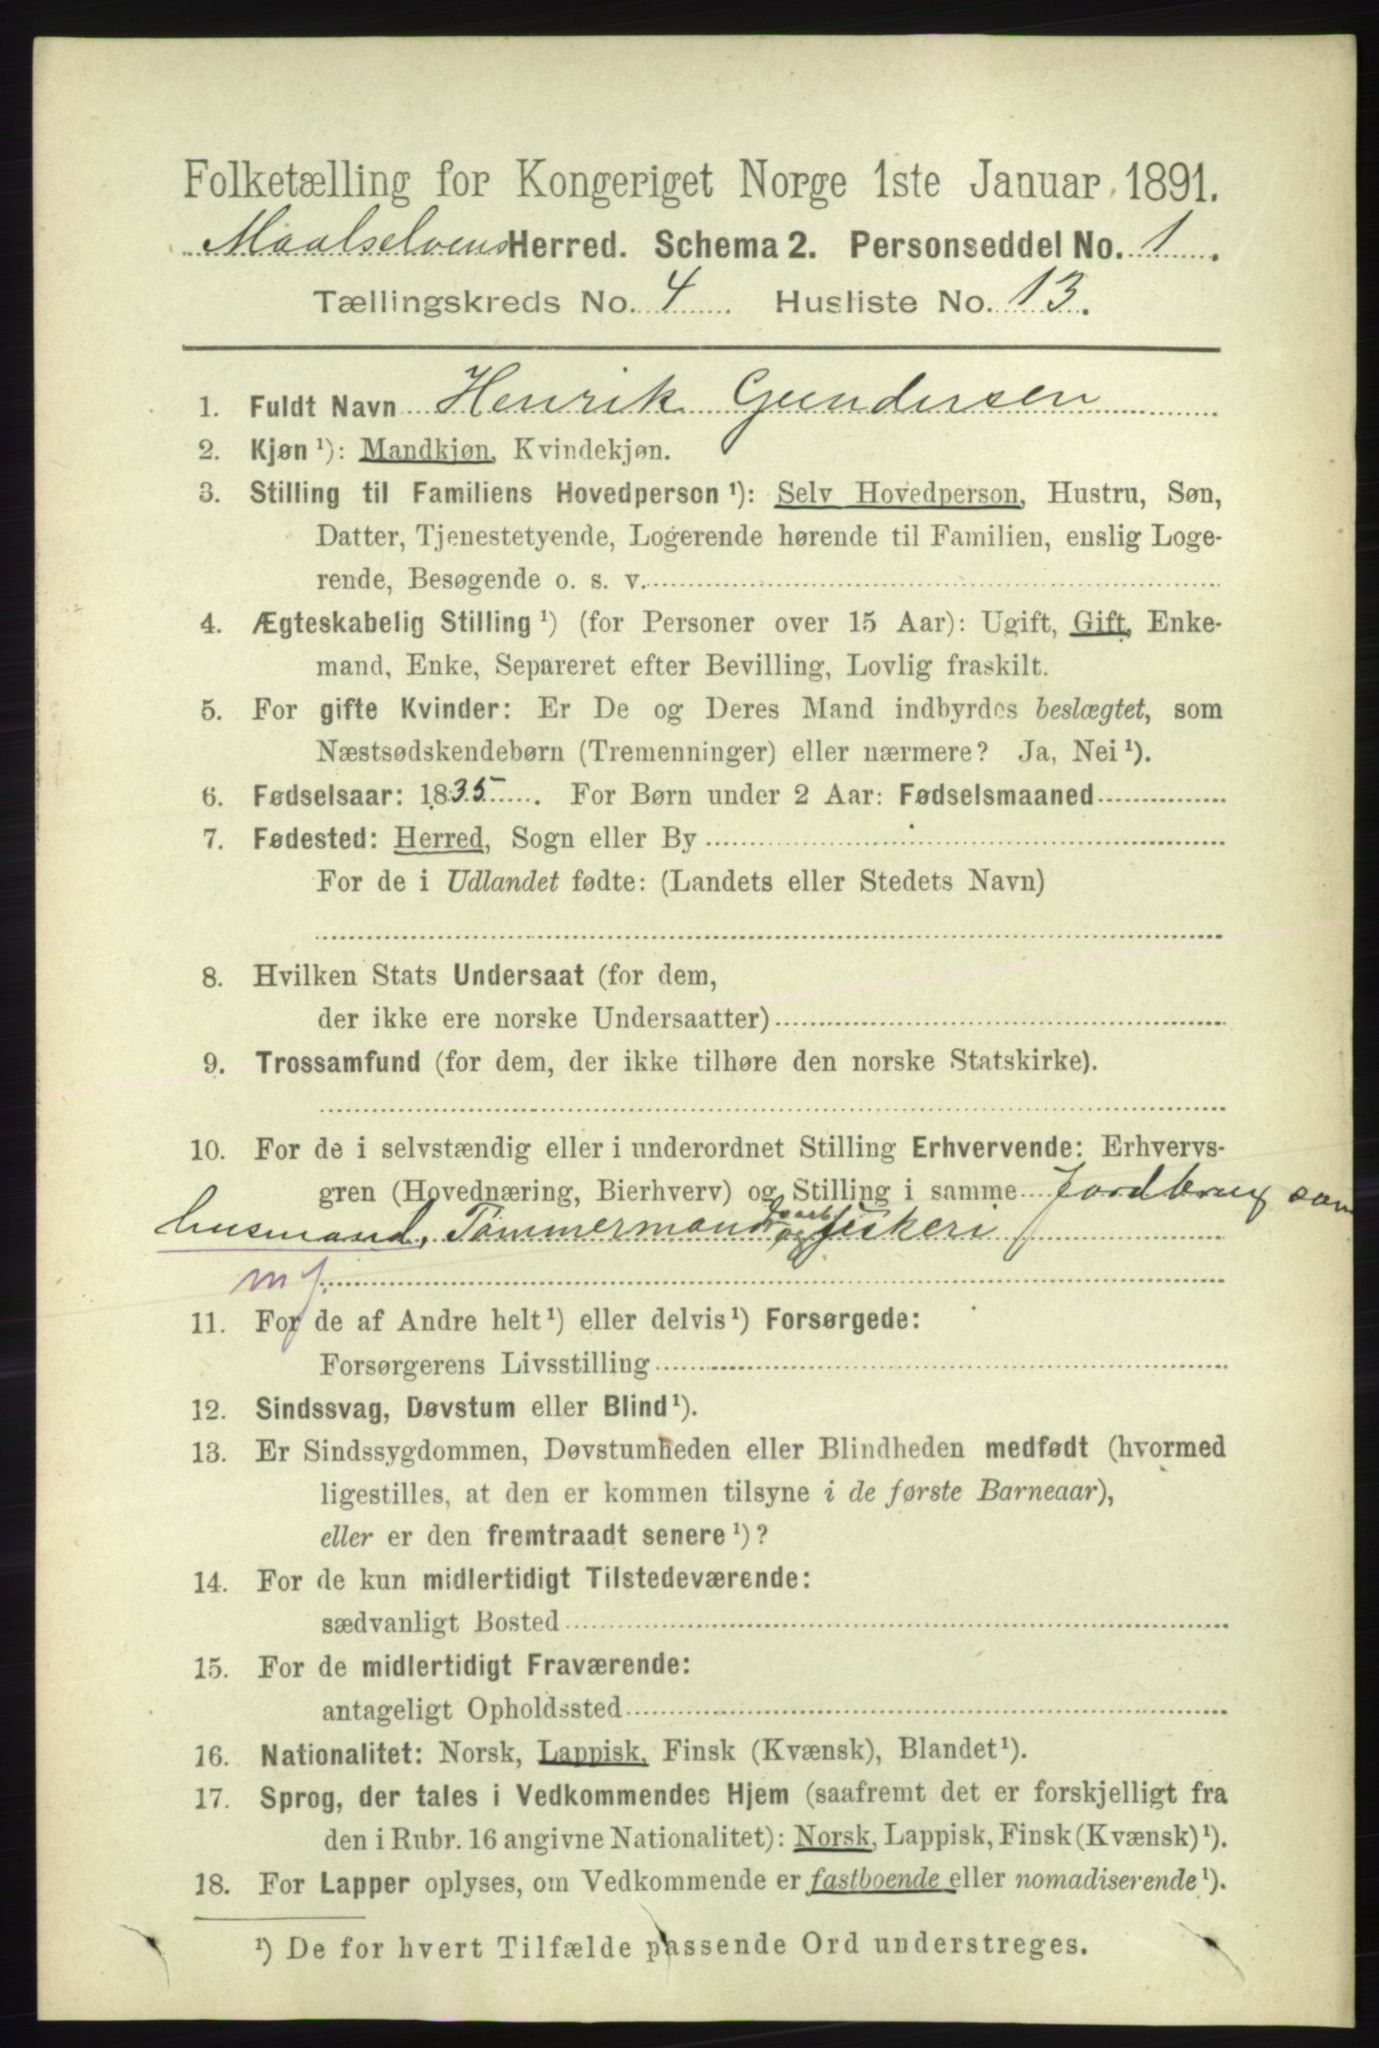 Folketælling for Kongeriget Norge 1ste Januar 1891.
Maalselvens Herred. Schema 2. Personseddel No. 1.
Tællingskreds No. 4 Husliste No. 13.
1. Fuldt Navn Henrik Gundersen
2. Kjøn ¹): Mandkjøn, Kvindekjøn.
3. Stilling til Familiens Hovedperson ¹): Selv Hovedperson, Hustru, Søn,
Datter, Tjenestetyende, Logerende hørende til Familien, enslig Loge-
rende, Besøgende o. s. v.
4. Ægteskabelig Stilling ¹) (for Personer over 15 Aar): Ugift, Gift, Enke-
mand, Enke, Separeret efter Bevilling, Lovlig fraskilt.
5. For gifte Kvinder: Er De og Deres Mand indbyrdes beslægtet, som
Næstsødskendebørn (Tremenninger) eller nærmere? Ja, Nei ¹).
6. Fødselsaar: 1835. For Børn under 2 Aar: Fødselsmaaned
7. Fødested: Herred, Sogn eller By
For de i Udlandet fødte: (Landets eller Stedets Navn)
8. Hvilken Stats Undersaat (for dem,
der ikke ere norske Undersaatter)
9. Trossamfund (for dem, der ikke tilhøre den norske Statskirke).
10. For de i selvstændig eller i underordnet Stilling Erhvervende: Erhvervs-
gren (Hovednæring, Bierhverv) og Stilling i samme Jordbrug som
husmand, Tømmermand og fiskeri
mf.
11. For de af Andre helt ¹) eller delvis ¹) Forsørgede:
Forsørgerens Livsstilling
12. Sindssvag, Døvstum eller Blind ¹).
13. Er Sindssygdommen, Døvstumheden eller Blindheden medfødt (hvormed
ligestilles, at den er kommen tilsyne i de første Barneaar),
eller er den fremtraadt senere ¹)?
14. For de kun midlertidigt Tilstedeværende:
sædvanligt Bosted
15. For de midlertidigt Fraværende:
antageligt Opholdssted
16. Nationalitet: Norsk, Lappisk, Finsk (Kvænsk), Blandet ¹).
17. Sprog, der tales i Vedkommendes Hjem (saafremt det er forskjelligt fra
den i Rubr. 16 angivne Nationalitet): Norsk, Lappisk, Finsk (Kvænsk) ¹).
18. For Lapper oplyses, om Vedkommende er fastboende eller nomadiserende ¹).
¹) De for hvert Tilfælde passende Ord understreges.